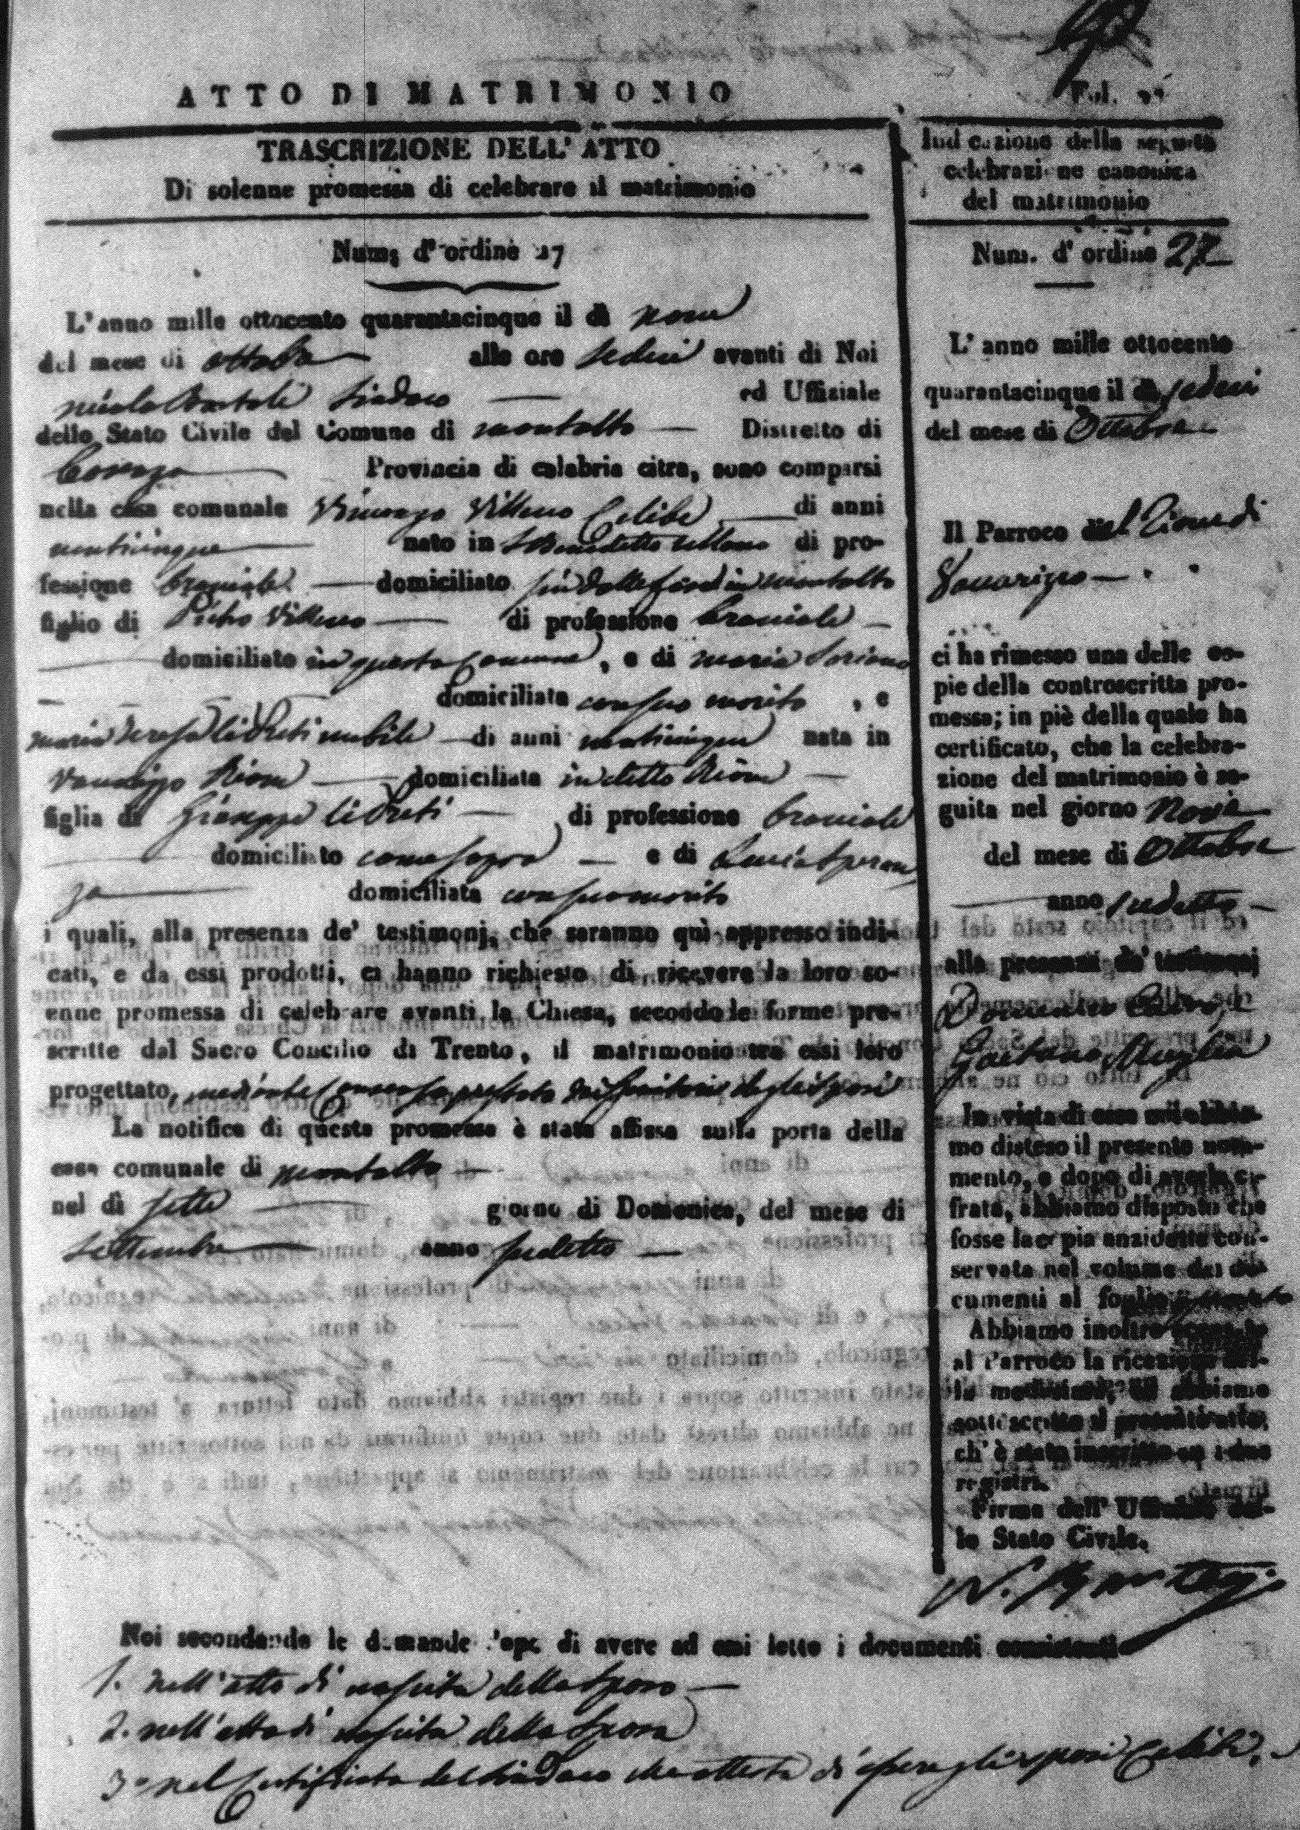 ATTO DI MATRIMONIO
Fol.
TRASCRIZIONE DELL' ATTO
Di solenne promessa di celebrare il matrimonio
Num. d' ordine 27
L'anno mille ottocento quarantacinque il dì nove
del mese di ottobre alle ore sedeci avanti di Noi
Sindaco ed Uffiziale
dello Stato Civile del Comune di montalto Distretto di
Cosenza Provincia di calabria citra, sono comparsi
nella casa comunale Vincenzo Villano Celibe di anni
venticinque nato in S. Benedetto Ullano di pro-
fessione bracciale domiciliato in montalto
figlio di Pietro Villano di professione bracciale
domiciliato in questo Comune, e di maria Soriano
domiciliata con suo marito, e
maria Teresa li Preti nubile di anni venticinque nata in
Vaccarizzo Rione domiciliata in detto Rione
figlia di Giuseppe li Preti di professione bracciale
domiciliato come sopra e di Lucia Speran
za domiciliata con suo marito
i quali, alla presenza de' testimonj, che saranno quì appresso indi-
cati, e da essi prodotti, ci hanno richiesto di ricevere la loro so-
enne promessa di celebrare avanti la Chiesa, secondo le forme pre-
scritte dal Sacro Concilio di Trento, il matrimonio tra essi loro
progettato, mediante Consenso prestato dai Genitori degli sposi
La notifica di questa promessa è stata affissa sulla porta della
casa comunale di montalto
nel dì sette giorno di Domenica, del mese di
Settembre anno sudetto
Noi secondando le domande dopo di avere ad essi letto i documenti consistenti
1. nell'atto di nascita dello Sposo
2. nell'atto di nascita della Sposa
3° nel Certificato del Sindaco che attesta di essere gli sposi Celibi,
Indicazione della seguita
celebrazione canonica
del matrimonio
Num. d' ordine 27
L' anno mille ottocento
quarantacinque il dì sedeci
del mese di Ottobre
Il Parroco di
Vaccarizzo
ci ha rimesso una delle co-
pie della controscritta pro-
messa; in piè della quale ha
certificato, che la celebra-
zione del matrimonio è se-
guita nel giorno nove
del mese di Ottobre
anno sudetto
alla presenza de' testimonj
Domenico e
Gaetano Muglia
In vista di esso noi abbia-
mo disteso il presente nom-
mento, e dopo di averla ci-
frata, abbiamo disposto che
fosse la copia anzidetta con-
servata nel volume dei do-
cumenti al foglio
Abbiamo inoltre accusato
al Parroco la ricezione del-
la medesima, ed abbiamo
sottoscritto il presente atto,
ch' è stato inscritto su i due
registri.
Firma dell' Uffiziale del-
lo Stato Civile.